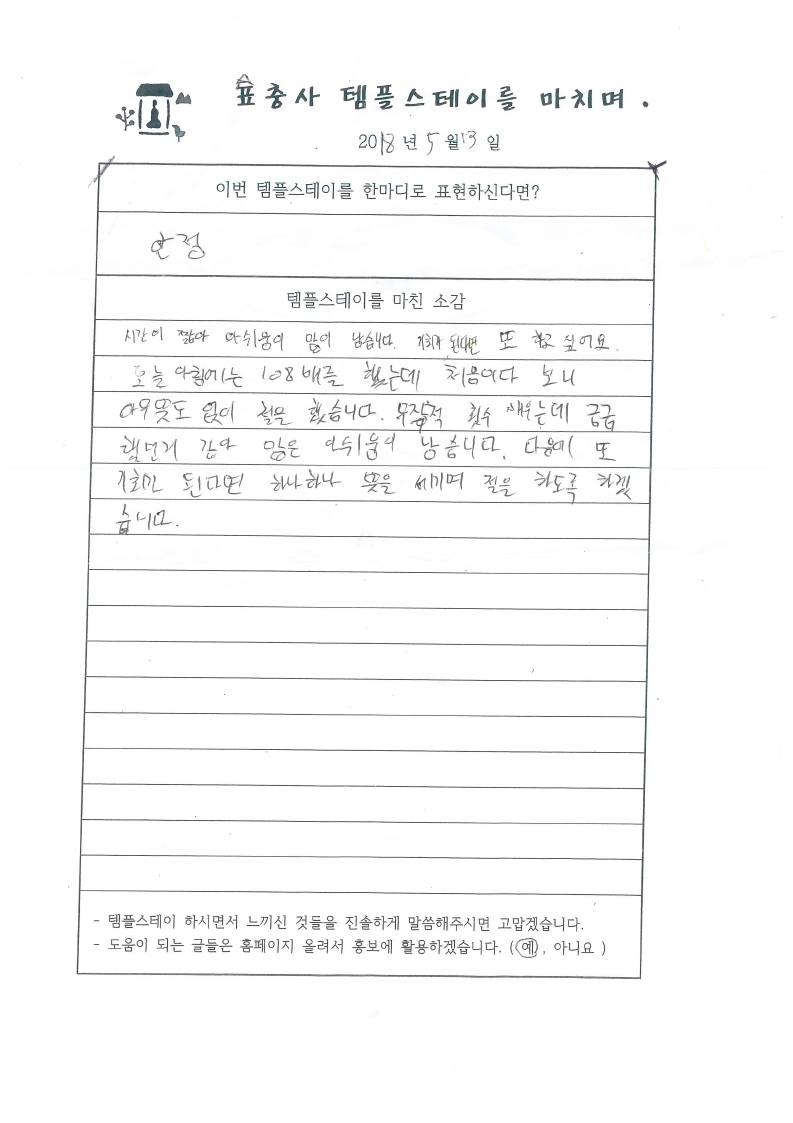 표충사 템플스테이를 마치며.
2018년 5월 13일
이번 템플스테이를 한마디로 표현하신다면?
안정
템플스테이를 마친 소감
시간이 짧아 아쉬움이 많이 남습니다. 기회가 된다면 또 하고 싶어요.
오늘 아침에는 108배를 했는데 처음이다 보니
아무 뜻도 없이 절을 했습니다. 무작적 횟수 채우는데 급급
했던거 같아 많은 아쉬움이 남습니다. 다음에 또
기회만 된다면 하나하나 뜻을 새기며 절을 하도록 하겠
습니다.
- 템플스테이 하시면서 느끼신 것들을 진솔하게 말씀해주시면 고맙겠습니다.
- 도움이 되는 글들은 홈페이지 올려서 홍보에 활용하겠습니다. (예, 아니요 )